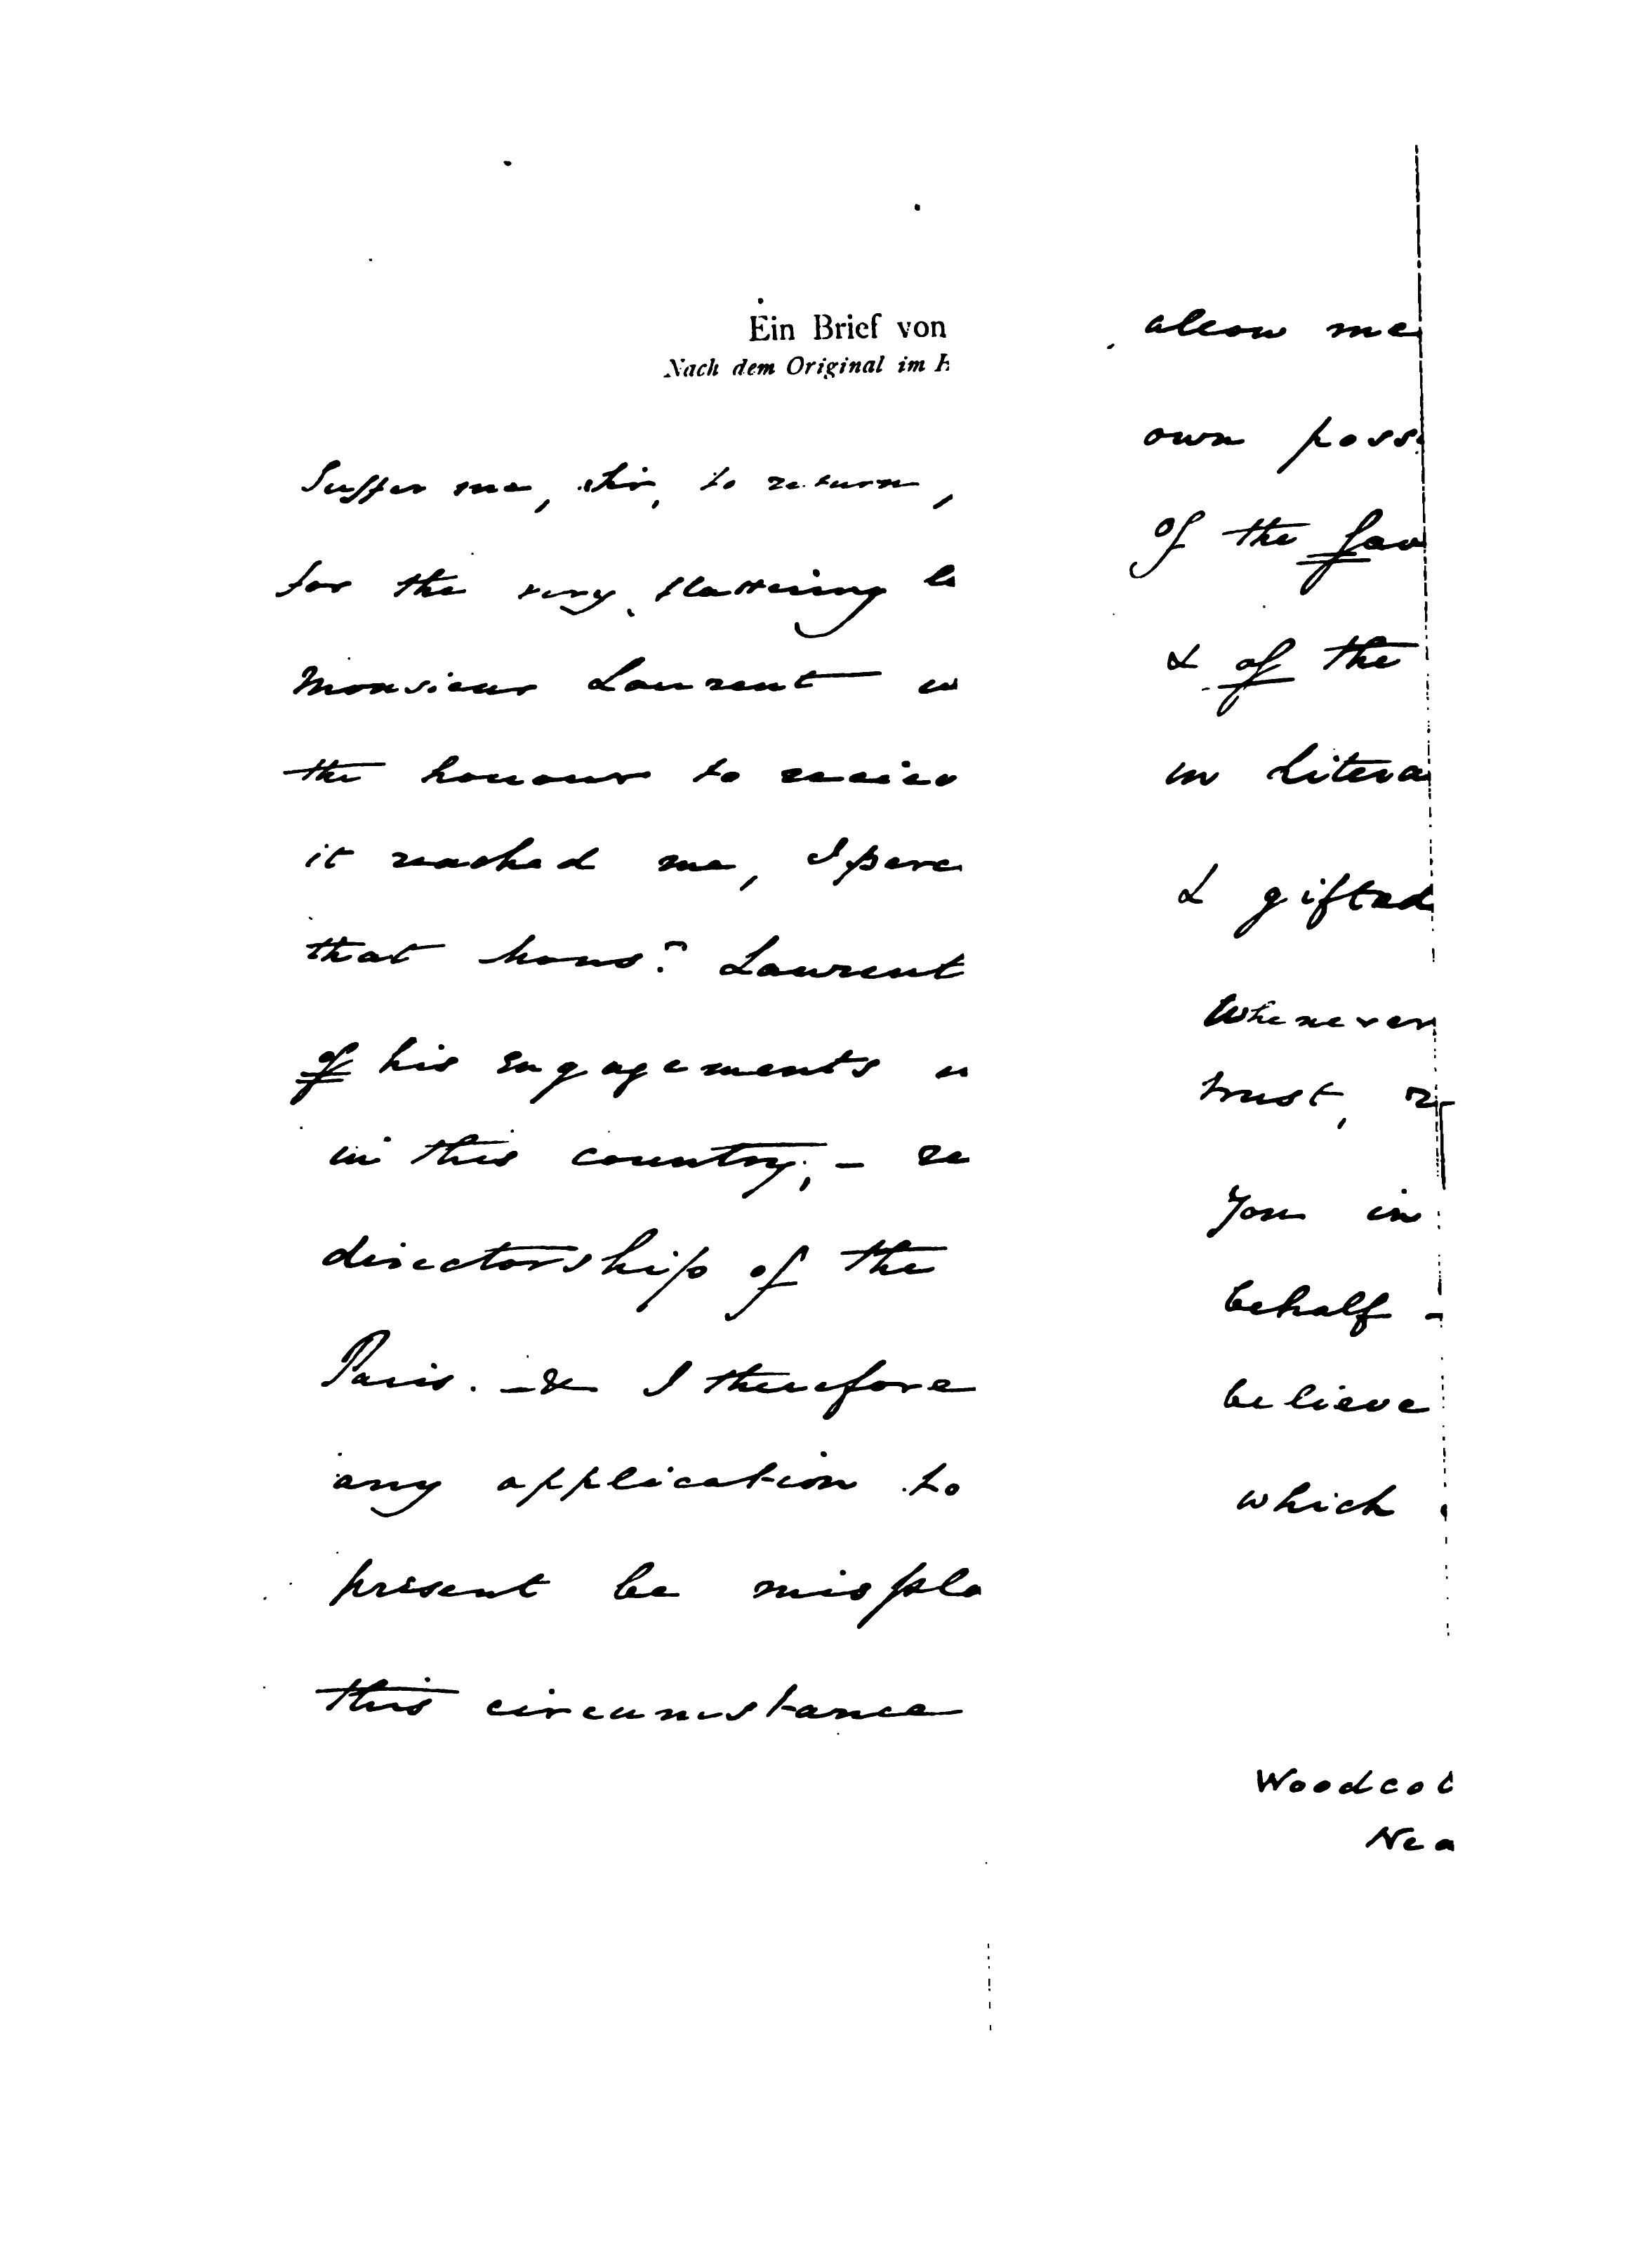 Ein Brief von
Nach dem Original im
Suffer me, Sir, to return,
for the very flattering le
Monsieur Laurent w
the honour to receiv
it reached me, I perc
that Mons.r Laurent
of his engagements
in this country; – re
directorship of the
Paris. – & I therefore
any application to
present be mispla
this circumstance
allow me
own poss
of the fav
& of the
in Litera
& gifted
Whenever
trust, r
You in
behalf –
believe
which
Woodcot
Nea